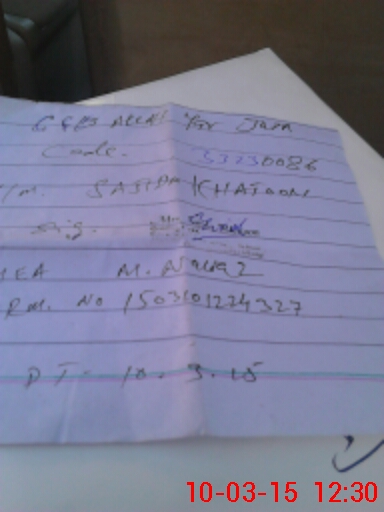 GGPS ALLAH Yar Java
Code. 53230086
/M. SAJIDA KHATOON
Sig.
MEA M. Nawaz
P.M. No 1503101224327
DT- 10.3.15
10-03-15 12:30